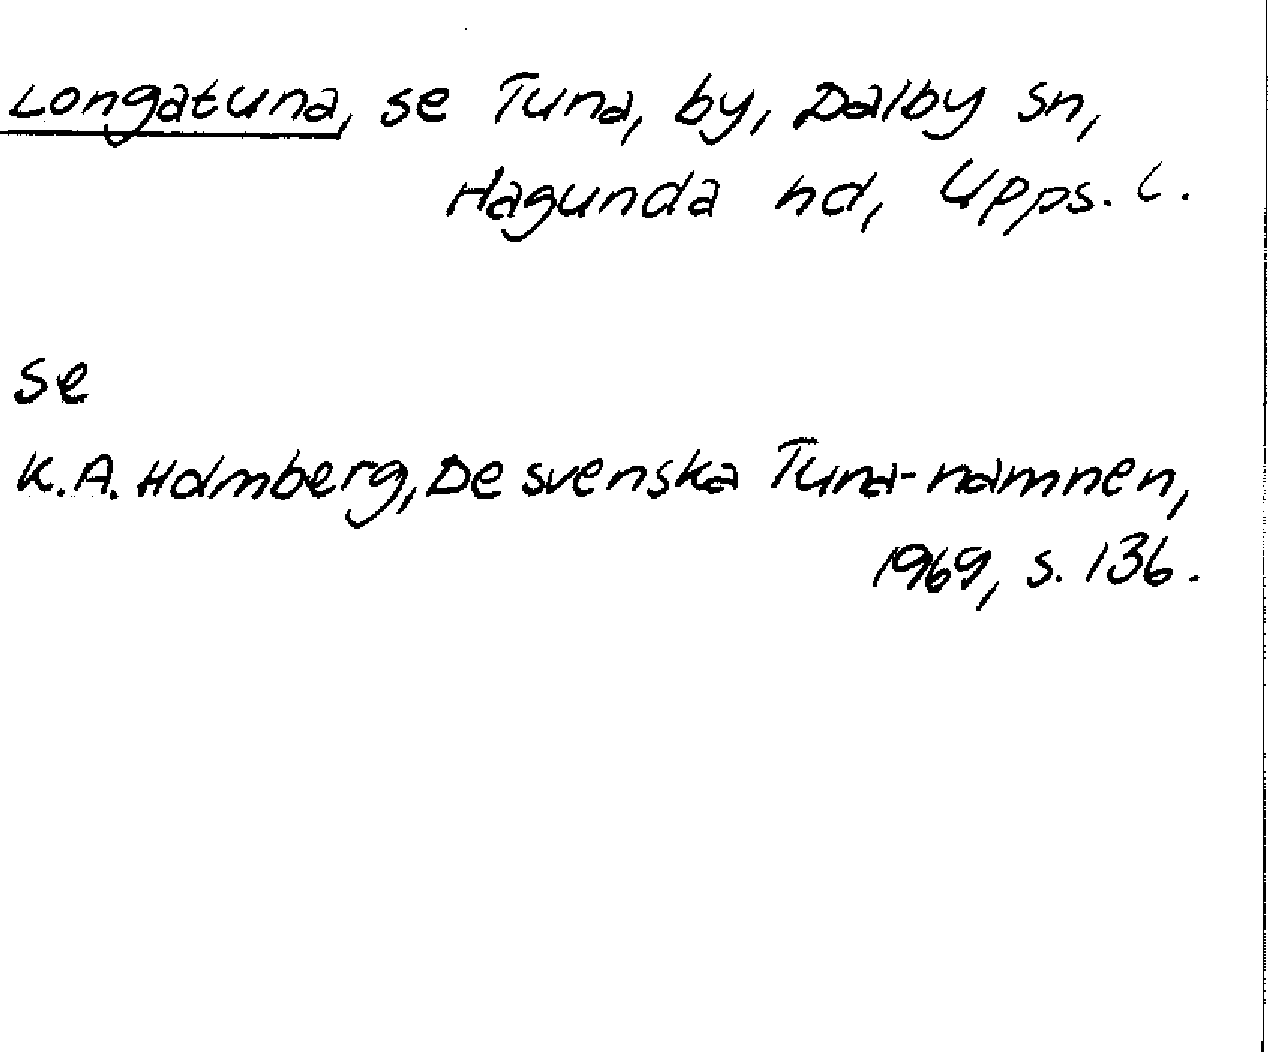 Longatuna, se Tuna, by, Dalby sn,
Hagunda hd, Upps. L.
se
K.A. Holmberg, De svenska Tuna-namnen,
1969, s. 136.